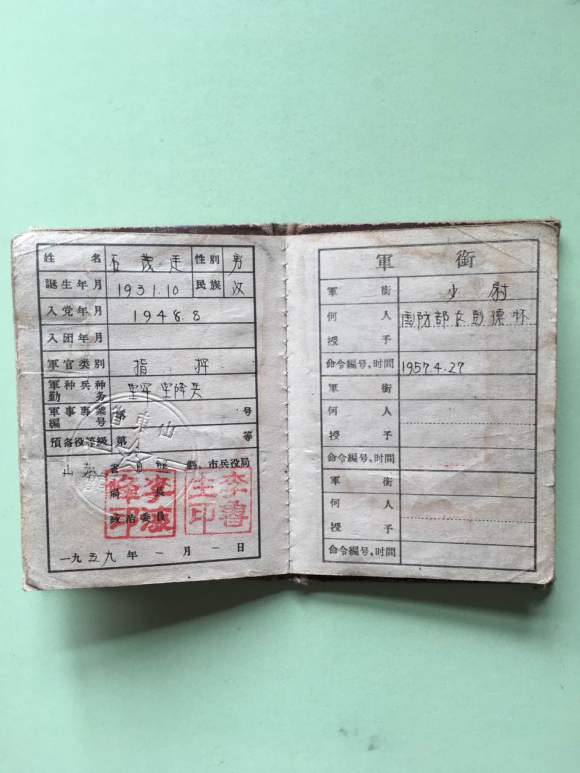 姓名 石茂廷 性别 男
誕生年月 1931.10 民族 汉
入党年月 1948.8
入团年月
軍官类别 指揮
軍种兵种勤务 空軍 空降兵
軍事專業編号 第 号
預备役等級 第 等
山东省 縣、市兵役局
局長
政治委員
李魯生印
一九五九年一月一日
軍銜
軍銜 少尉
何人授予 国防部长彭德怀
命令編号、时間 1957.4.27
軍銜
何人授予
命令編号、时間
軍銜
何人授予
命令編号、时間